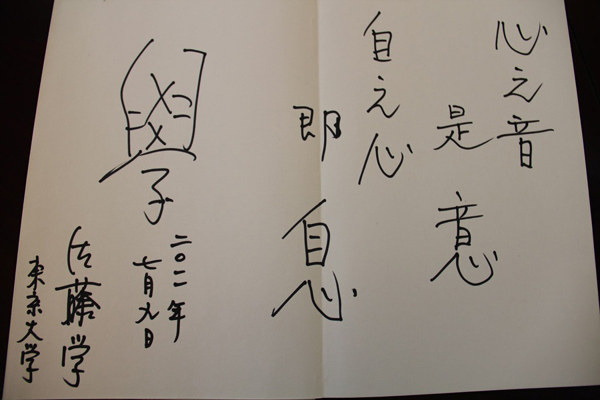 心之音
是意
自之心
即息
學
二〇一一年
七月九日
佐藤学
東京大学